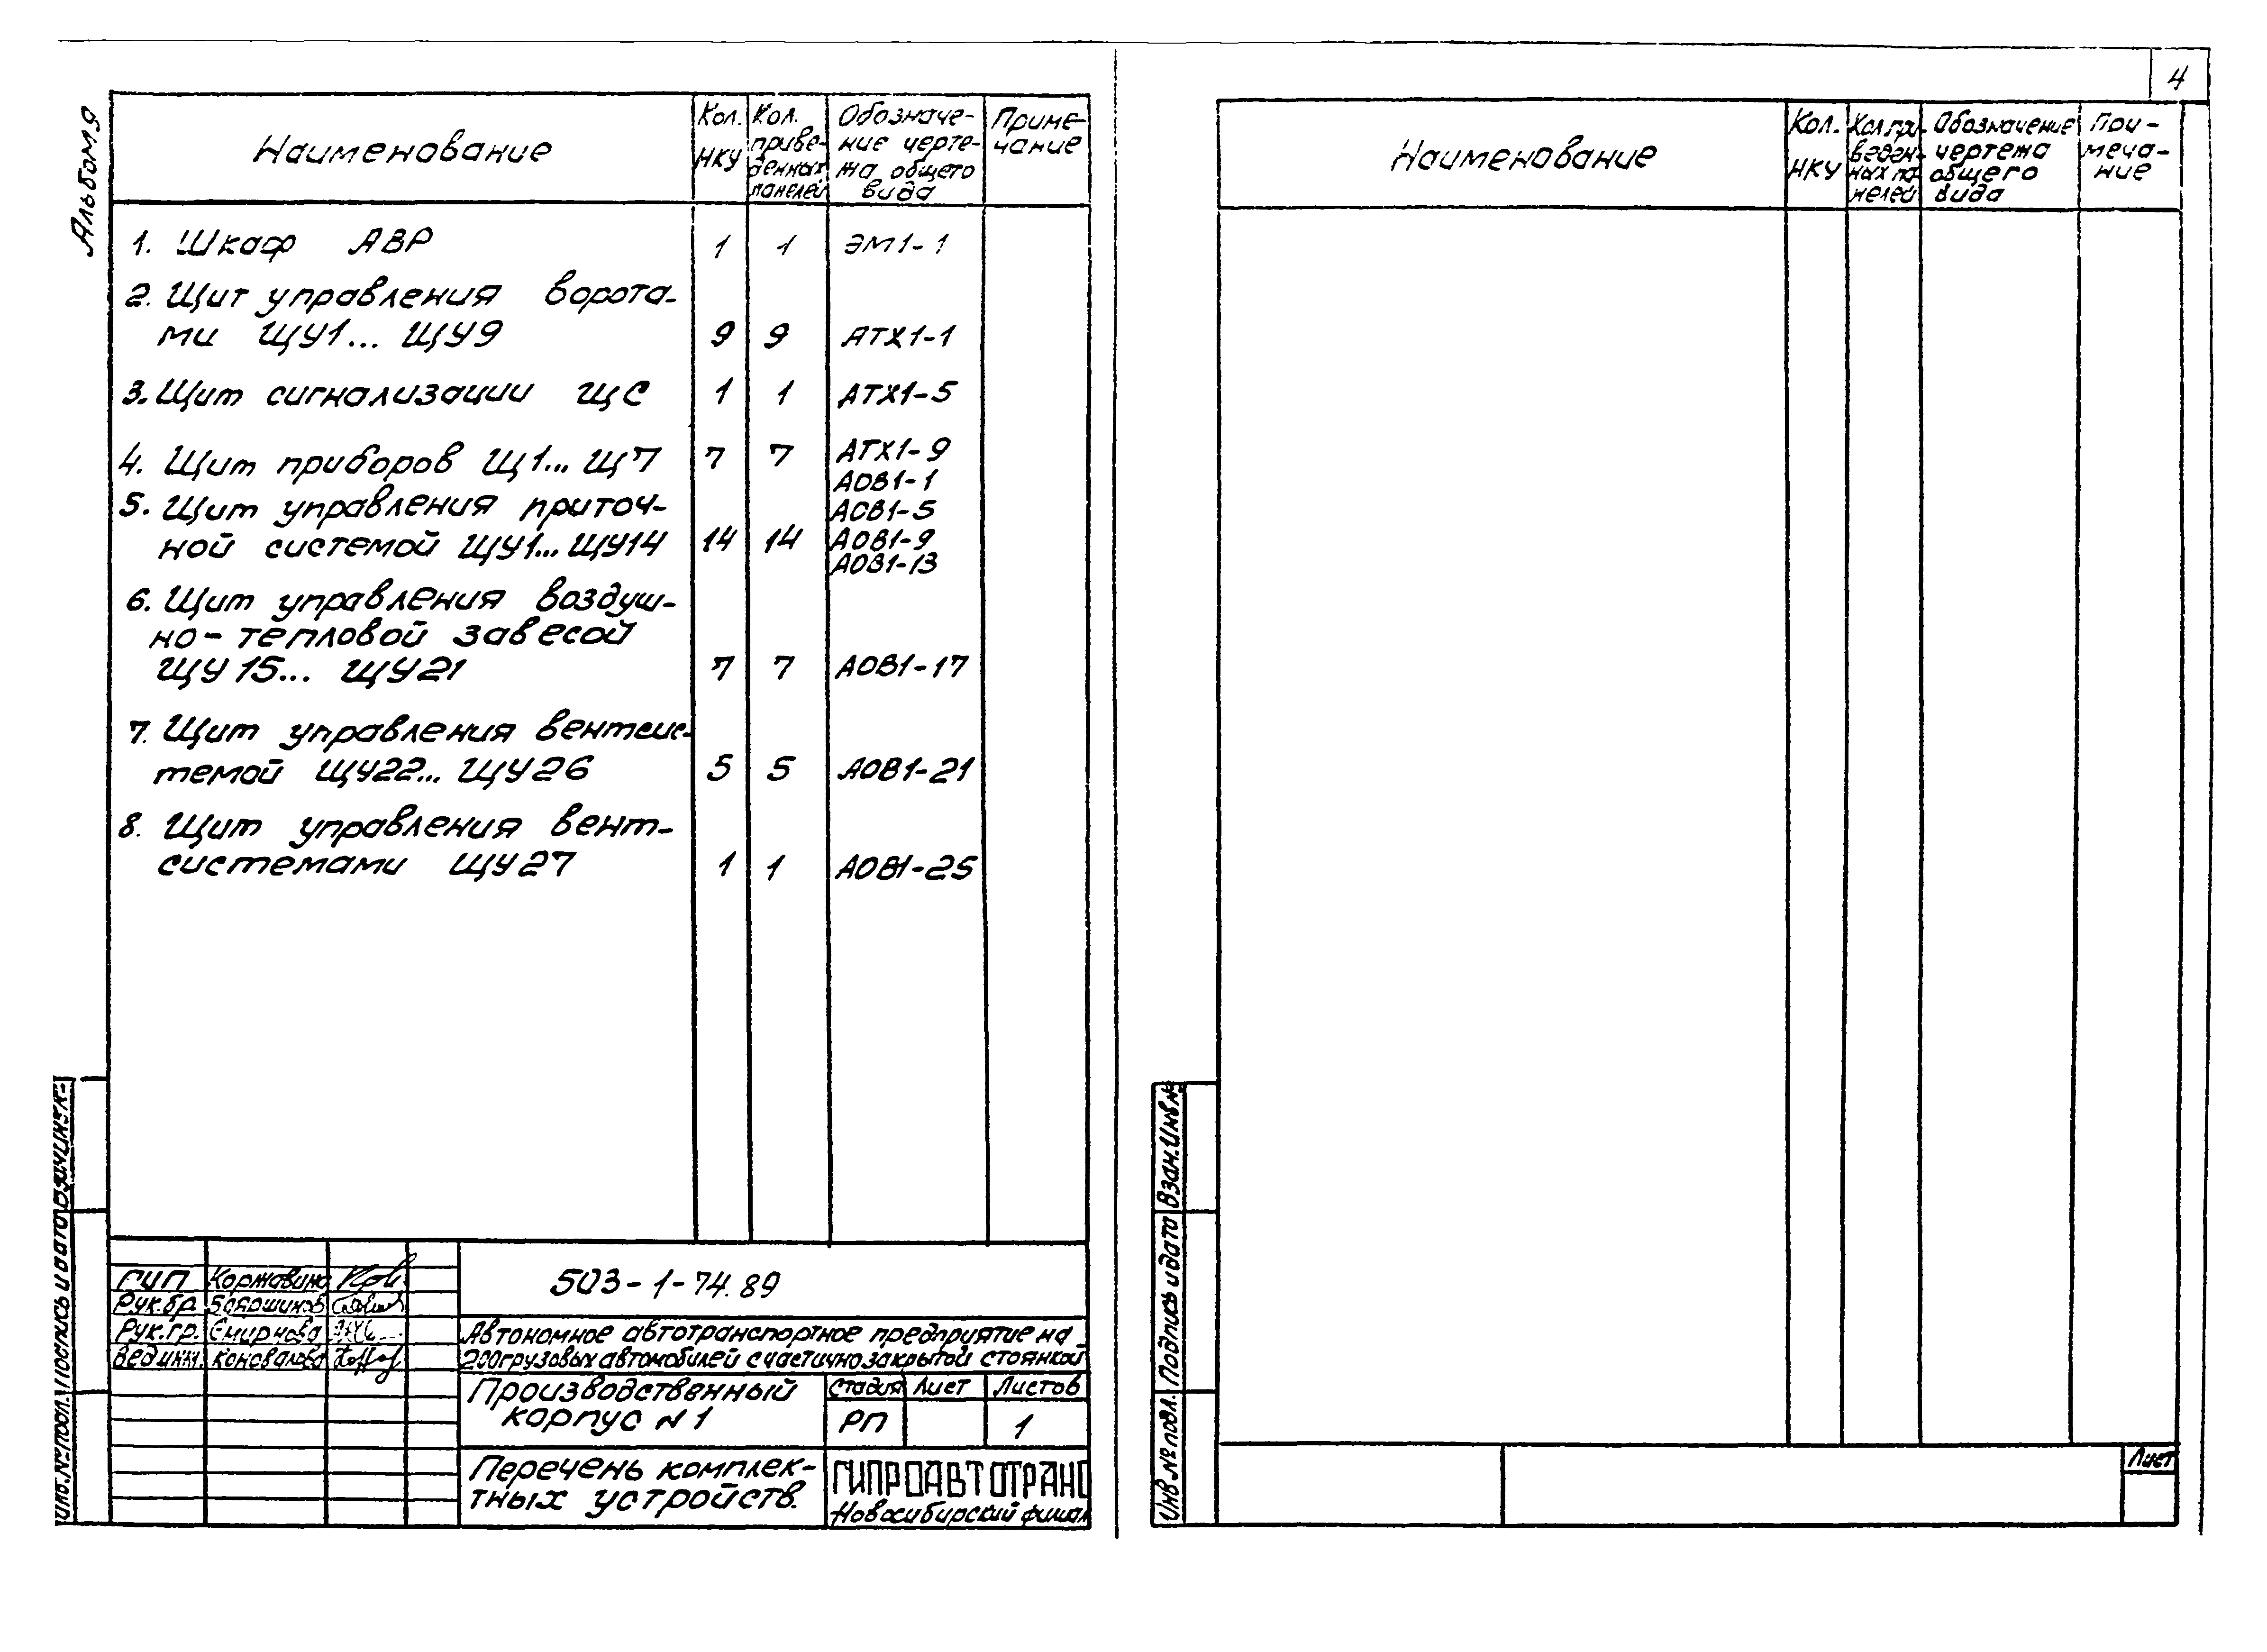 4
Альбом 9
Наименование
Кол. НКУ
Кол. приве-
денных
панелей
Обозначе-
ние черте-
жа общего
вида
Приме-
чание
1. Шкаф АВР 1 1 ЭМ1-1
2. Щит управления ворота-
ми ЩУ1... ЩУ9 9 9 АТХ1-1
3. Щит сигнализации ЩС 1 1 АТХ1-5
4. Щит приборов Щ1... Щ7 7 7 АТХ1-9
АОВ1-1
5. Щит управления приточ-
АОВ1-5
ной системой ЩУ1... ЩУ14 14 14 АОВ1-9
АОВ1-13
6. Щит управления воздуш-
но-тепловой завесой
ЩУ15... ЩУ21 7 7 АОВ1-17
7. Щит управления вентсис-
темой ЩУ22... ЩУ26 5 5 АОВ1-21
8. Щит управления вент-
системами ЩУ27 1 1 АОВ1-25
ГИП Коржавина
Рук.бр. Бояршинов
Рук.гр. Смирнова
Вед.инж. Коновалова
503-1-74.89
Автономное автотранспортное предприятие на
200 грузовых автомобилей с частично закрытой стоянкой
Производственный
корпус N1
Стадия Лист Листов
РП 1
Перечень комплек-
тных устройств.
ГИПРОАВТОТРАНС
Новосибирский филиал
Инв.№ подл. Подпись и дата
Наименование
Кол.
НКУ
Кол.при-
веден-
ных па-
нелей
Обозначение
чертежа
общего
вида
При-
меча-
ние
Инв.№ подл. Подпись и дата Взам.Инв.№
Лист